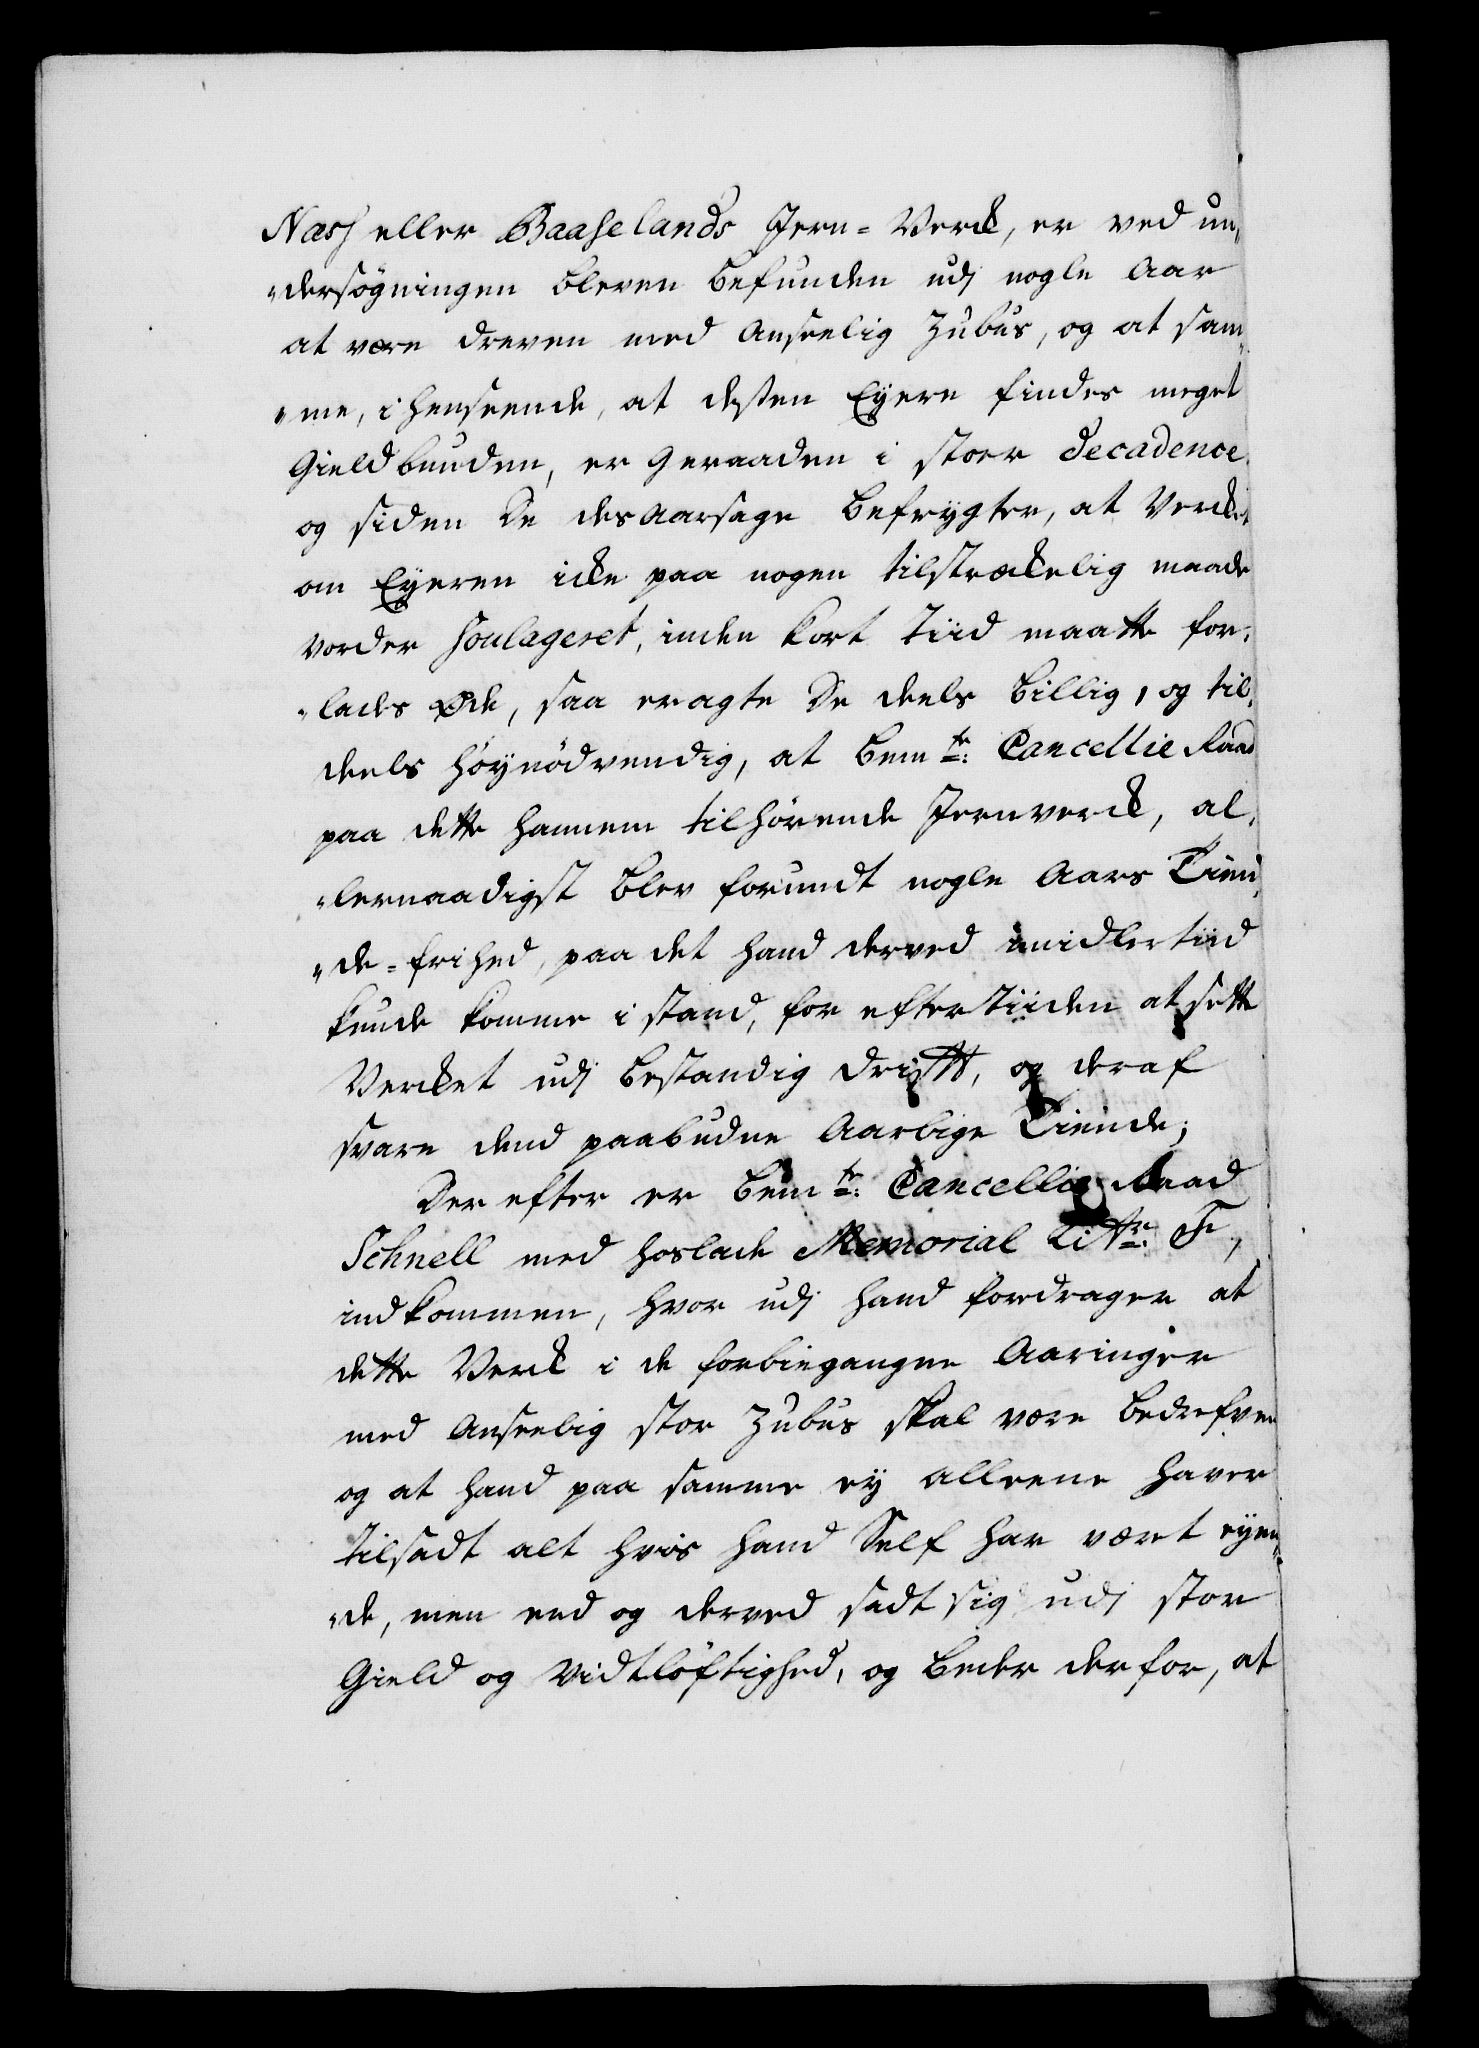 Næss eller Baaselands Jern-Verck, er ved un„
„dersøgningen bleven befunden udj nogle Aar
at være dreven med anseelig Zubus, og at sam„
„me, i henseende, at desten Eyere findes meget
Gieldbunden, er geraaden i stoer decadence
og siden de desaarsage befrygter, at Verket
om Eyeren icke paa nogen tilstreckelig maade
vorder soulageret, inden kort Tiid maatte for„
„lades øde, saa eragte de deels billig, og til„
deels høynødvendig, at bemte: Cancellie Raad
paa dette hannem tilhørende Jernverck, al„
„lernaadigst blev forundt nogle Aars Tien„
„de-frihed, paa det hand derved imidlertiid
kunde komme i stand, for eftertiiden at sette
Vercket udj bestandig drifft, og deraf
svare dend paabudne Aarlige Tiende;
Der efter er bemte: Cancellie Raad
Schnell med hoslade Memorial Littr: F,
indkommen, hvor udj hand fordrager at
dette Verck i de forbiegangne Aaringer
med anseelig stor Zubus skal være bedrefven
og at hand paa samme ey alleene haver
tilsadt alt hvis hand Self har været eyen„
„de, men end og derved sadt sig udj stor
Gield og Vidtløftighed, og beder derfor, at